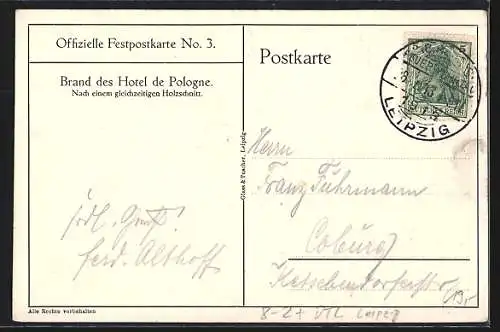 Offizielle Festpostkarte No. 3.
Brand des Hotel de Pologne.
Nach einem gleichzeitigen Holzschnitt.
frdl. Gruß!
Ferd. Althoff
Alle Rechten vorbehalten
Glass & Tuscher, Leipzig
Postkarte
5 5
LEIPZIG
Herrn
Franz Fuhrmann
Coburg
Ketschendorferstr.
19,-
8-27 VTL Leipzig